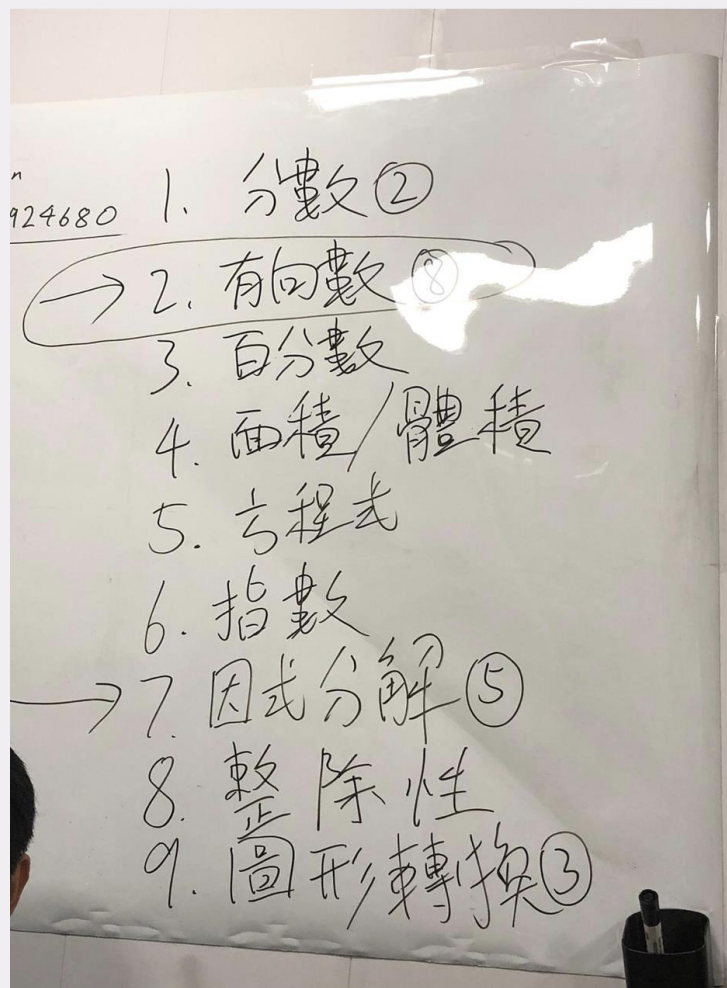 n
924680
1. 分數 ②
→ 2. 有向數 ⑧
3. 百分數
4. 面積/體積
5. 方程式
6. 指數
→ 7. 因式分解 ⑤
8. 整除性
9. 圖形轉換 ③